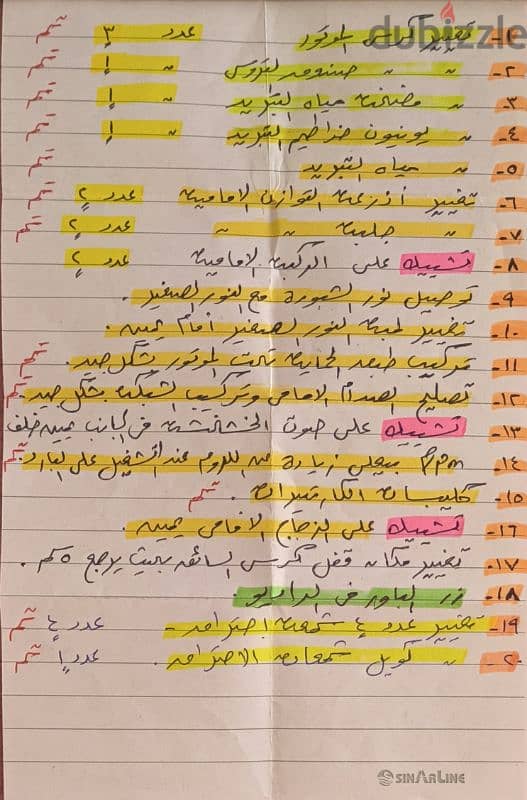 dubizzle
١- تغيير كراسى الموتور عدد ٣ تم
٢- " " صندوق التروس " ١ تم
٣- " مضخة مياه التبريد " ١ تم
٤- " يونيون خراطيم التبريد " ١ تم
٥- " مياه التبريد تم
٦- تغيير أذرعة التوازن الأمامية عدد ٢ تم
٧- " جلبة " " عدد ٢ تم
٨- تشييك على الركبة الأمامية عدد ٢
٩- توصيل نور الشبورة مع النور الصغير.
١٠- تغيير لمبة النور الصغير أمام يمين.
١١- تركيب طبة الحماية تحت الموتور بشكل جيد. تم
١٢- تصليح الصدام الأمامى وتركيب الشبكة بشكل جيد. تم
١٣- تشييك على صوت الخشخشة فى الجانب يمين خلف
١٤- RPM بيعلى زيادة عن اللزوم عند التشغيل على البارد. تم
١٥- كليبسات الكارتيرات. تم
١٦- تشييك على الزجاج الأمامى يمين.
١٧- تغيير مكان قفل كرسى السائق بحيث يرجع ٥ سم.
١٨- زر الباور فى الراديو.
١٩- تغيير عدد ٤ شمعات احتراق - عدد ٤ تم
٢٠- " كويل شمعات الاحتراق. عدد ١ تم
SINARLINE